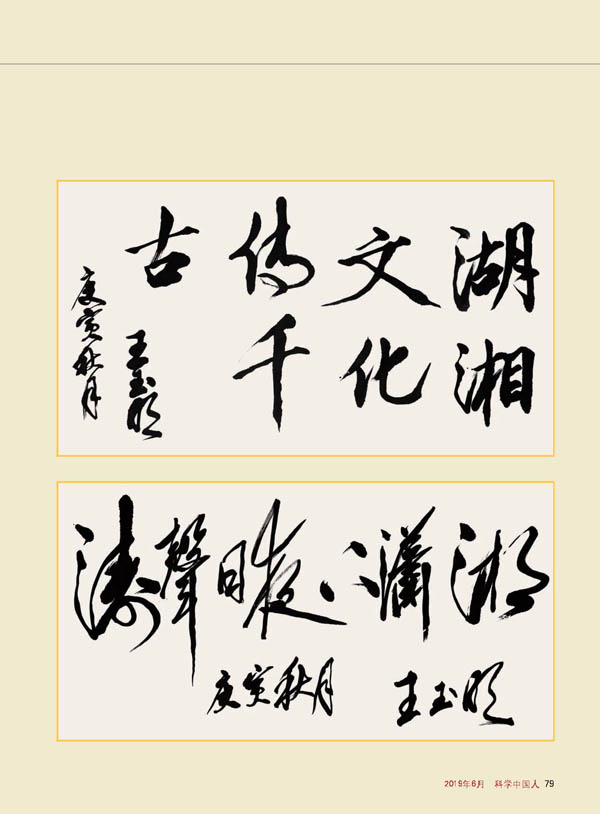 湖湘
文化
传千
古
王玉明
庚寅秋月
濤聲日夜瀟湘
庚寅秋月 王玉明
2019年6月 科学中国人 79